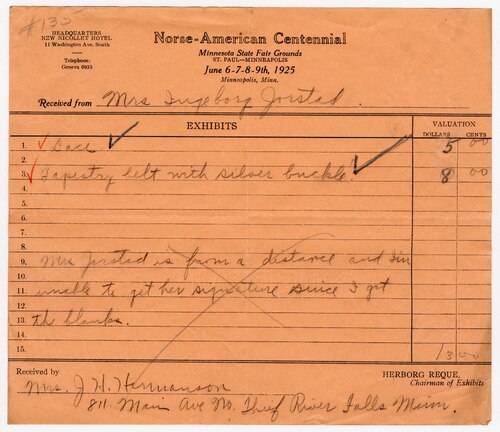 #135
HEADQUARTERS
NEW NICOLLET HOTEL
11 Washington Ave. South
Telephone:
Geneva 6935
Norse-American Centennial
Minnesota State Fair Grounds
ST. PAUL—MINNEAPOLIS
June 6-7-8-9th, 1925
Minneapolis, Minn.
Received from Mrs Ingeborg Jorstad.
EXHIBITS
VALUATION
DOLLARS CENTS
1. ✓ Lace ✓ 5 00
2.
3. ✓ Tapestry belt with silver buckle. ✓ 8 00
4.
5.
6.
7.
8.
9. Mrs Jorstad is from a distance and I'm
10.
11. unable to get her signature since I got
12.
13. th blanks.
14.
15. 13 00
Received by
HERBORG REQUE,
Chairman of Exhibits
Mrs. J. H. Hermanson
811 Main Ave N. Thief River Falls Minn.